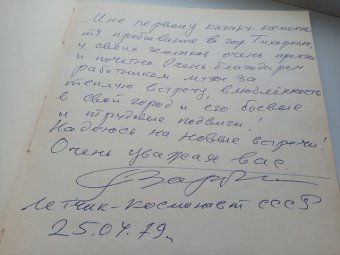 Мне первому казаку-космонав
ту пребывание в гор. Тихорецк,
у своих земляков очень приятно
и почетно. Очень благодарен
работникам музея за
теплую встречу, влюблённость
в свой город и его боевые
и трудовые подвиги!
Надеюсь на новые встречи!
Очень уважая вас
Летчик-космонавт СССР
25.04.79г.